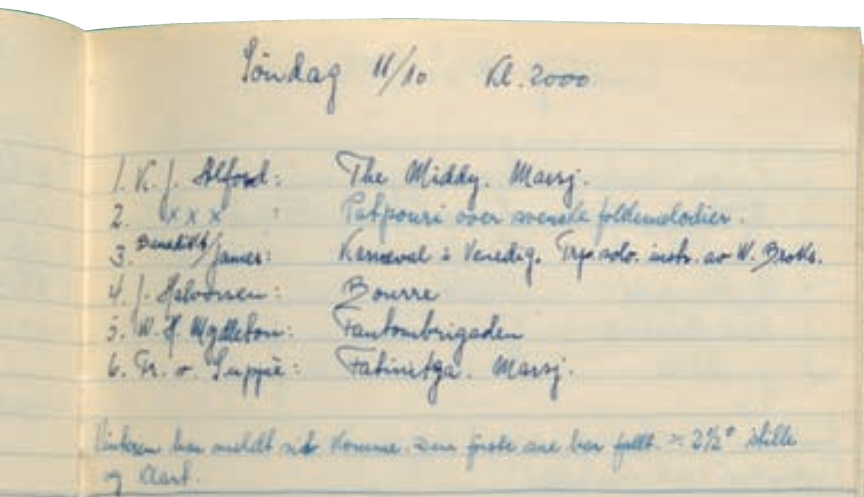 Søndag 11/10 Kl. 2000
1. K. J. Alford: The Middy. Marsj.
2. x x x : Potpouri over svenske folkemelodier.
3. Benedikt/James: Karneval i Venedig. Trp. solo. instr. av W. Brotks.
4. J. Halvorsen: Bourre
5. W. H. Myddleton: Fantombrigaden
6. Fr. v. Suppiè: Fatinitza. Marsj.
Vinteren har meldt sitt komme. Den første sne har falt. ÷ 2½° stille
og klart.